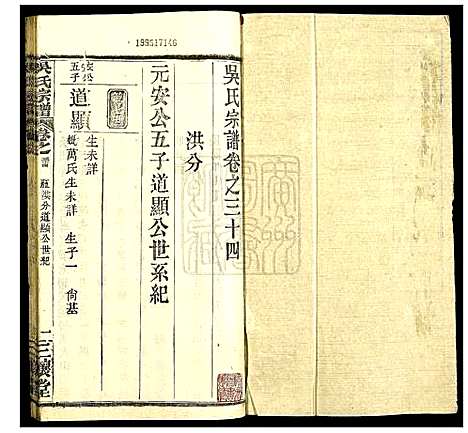 199517146
吳氏宗譜卷之三十四
洪分
元安公五子道顯公世系紀
安公五子
道顯
生未詳
娶萬氏生未詳 生子一 尚基
吳氏宗譜
卷之
洪分道顯公世紀
三讓堂